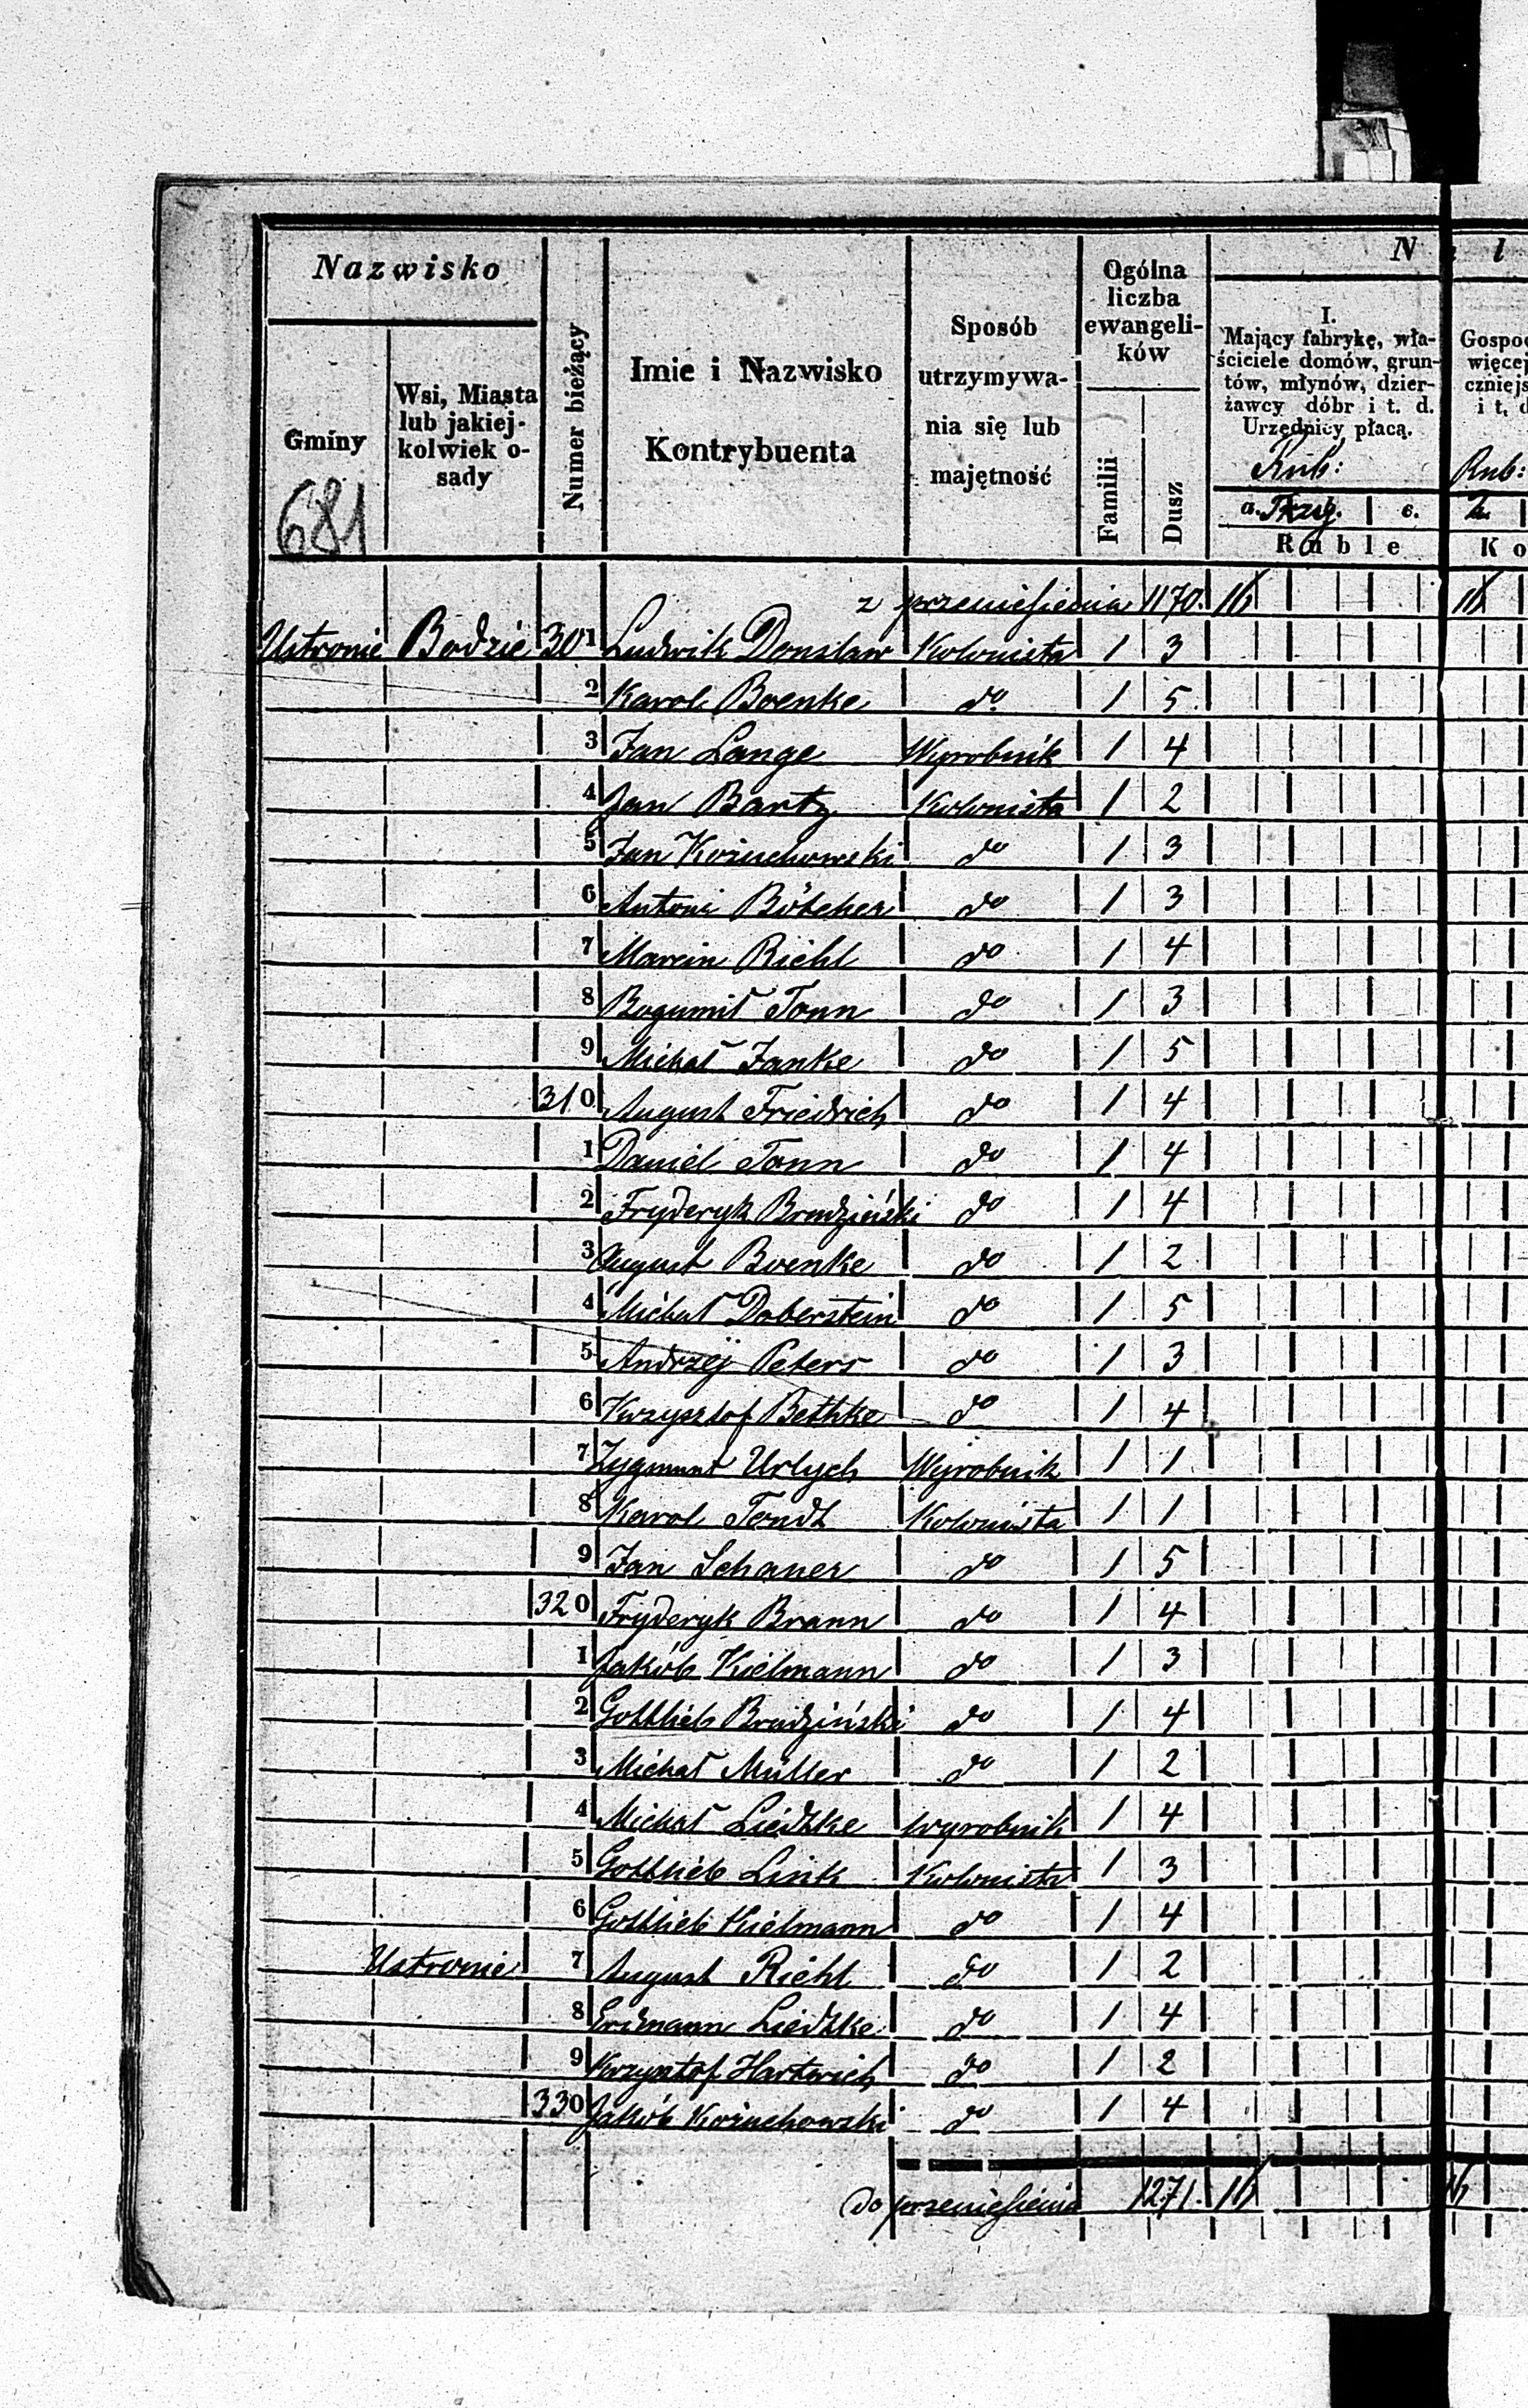 Nazwisko
Gminy
Wsi, Miasta
lub jakiej-
kolwiek o-
sady
Numer bieżący
Imie i Nazwisko
Kontrybuenta
Sposób
utrzymywa-
nia się lub
majętność
Ogólna
liczba
ewangeli-
ków
Familii
Dusz
N a l
I.
Mający fabrykę, wła-
ściciele domów, grun-
tów, młynów, dzier-
żawcy dóbr i t. d.
Urzędnicy płacą.
Rub:
a. c.
Ruble
Gospod
więcej
czniejs
i t. d
Rub:
Ko
681
z przeniesienia 1170. 16 16
Ustronie Bodzie 301 Ludwik Donslaw Kolonista 1 3
2 Karol Boenke do 1 5
3 Jan Lange Wyrobnik 1 4
4 Jan Bartz Kolonista 1 2
5 Jan Kożuchowski do 1 3
6 Antoni Bötcher do 1 3
7 Marcin Riehl do 1 4
8 Bogumił Tonn do 1 3
9 Michał Janke do 1 5
310 August Friedrich do 1 4
1 Daniel Tonn do 1 4
2 Fryderyk Brudziński do 1 4
3 August Boenke do 1 2
4 Michał Doberstein do 1 5
5 Andrzej Peters do 1 3
6 Krzysztof Bethke do 1 4
7 Zygmunt Urlych Wyrobnik 1 1
8 Karol Tendt Kolonista 1 1
9 Jan Schauer do 1 5
320 Fryderyk Braun do 1 4
1 Jakób Kielmann do 1 3
2 Gottlieb Brudziński do 1 4
3 Michał Müller do 1 2
4 Michał Liedtke wyrobnik 1 4
5 Gottlieb Link Kolonista 1 3
6 Gottlieb Kielmann do 1 4
Ustronie 7 August Riehl do 1 2
8 Erdmann Liedtke do 1 4
9 Krzysztof Hartwich do 1 2
330 Jakób Kożuchowski do 1 4
do przeniesienia 1271. 16 16